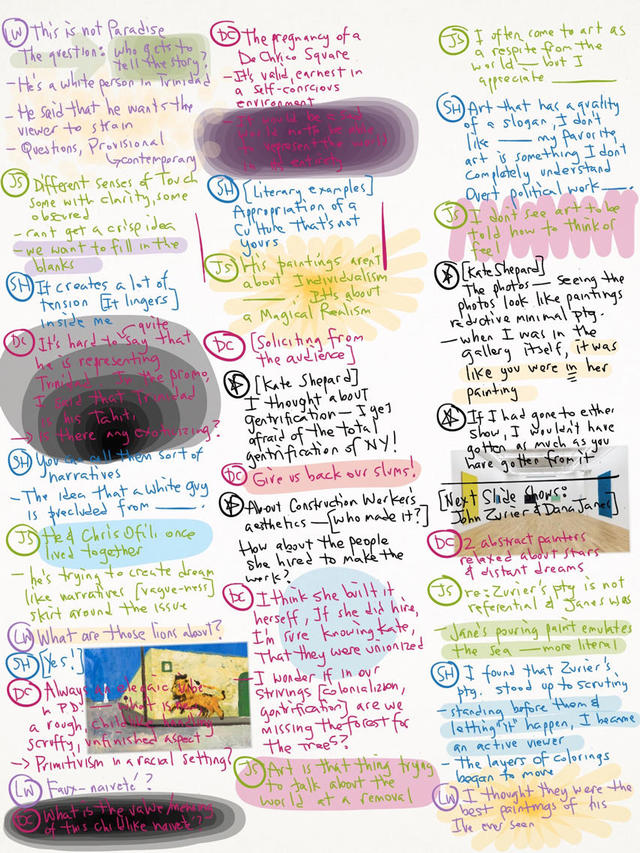 LW This is not Paradise
The question: who gets to
tell the story?
- He's a white person in Trinidad
- He said that he wants the
viewer to strain
- Questions, Provisional
↳ contemporary
JS Different senses of Touch
some with clarity, some
obscured
- cant get a crisp idea
- we want to fill in the
blanks
SH It creates a lot of
tension [It lingers]
inside me
DC It's hard to quite say that
he is representing
Trinidad. In the promo,
I said that Trinidad
is his Tahiti,
→ Is there any exoticizing?
SH You can call them sort of
narratives
- The idea that a white guy
is precluded from ____.
JS He & Chris Ofili once
lived together
- he's trying to create dream
like narratives [vague-ness]
skirt around the issue
LW What are those lions about?
SH [Yes!]
DC Always an elegaic vibe
in P.D.
a rough, childlike handling
scruffy, unfinished aspect
→ Primitivism in a racial setting?
LW Faux-naiveté?
DC What is the value/meaning
of this childlike naiveté?
DC The pregnancy of a
De Chirico Square
- It's valid, earnest in
a Self-conscious
environment
- It would be a sad
world not to be able
to represent the world
in its entirety
SH [Literary examples]
Appropriation of a
Culture that's not
yours
JS His paintings aren't
about Individualism
____. It's about
a Magical Realism
DC [Soliciting from
the audience]
[Kate Shepard]
I thought about
gentrification — I get
afraid of the total
gentrification of NY!
DC Give us back our slums!
About Construction Workers
aesthetics — [who made it?]
How about the people
she hired to make the
work?
DC I think she built it
herself, If she did hire,
I'm sure knowing Kate,
that they were unionized
- I wonder if in our
strivings [colonializion,
gentrification] are we
missing the forest for
the trees?
JS Art is that thing trying
to talk about the
world at a removal
JS I often come to art as
a respite from the
world — but I
appreciate ____
SH Art that has a quality
of a slogan, I don't
like ____ my favorite
art is something I don't
completely understand
Overt political work ____.
JS I dont see art to be
told how to think or
feel
[Kate Shepard]
The photos — seeing the
photos look like paintings
reductive minimal ptg.
- when I was in the
gallery itself, it was
like you were in her
painting
If I had gone to either
show, I wouldn't have
gotten as much as you
have gotten from it
[Next Slide Shows:
John Zurier & Dana James]
DC 2 abstract painters
relaxed about stars
& distant dreams
JS re: Zurier's ptg is not
referential & Janes was
- Jane's pouring paint emulates
the sea — more literal
SH I found that Zurier's
ptg. stood up to scrutiny
- standing before them &
letting "it" happen, I became
an active viewer
- The layers of colorings
began to move
LW I thought they were the
best paintings of his
I've ever seen